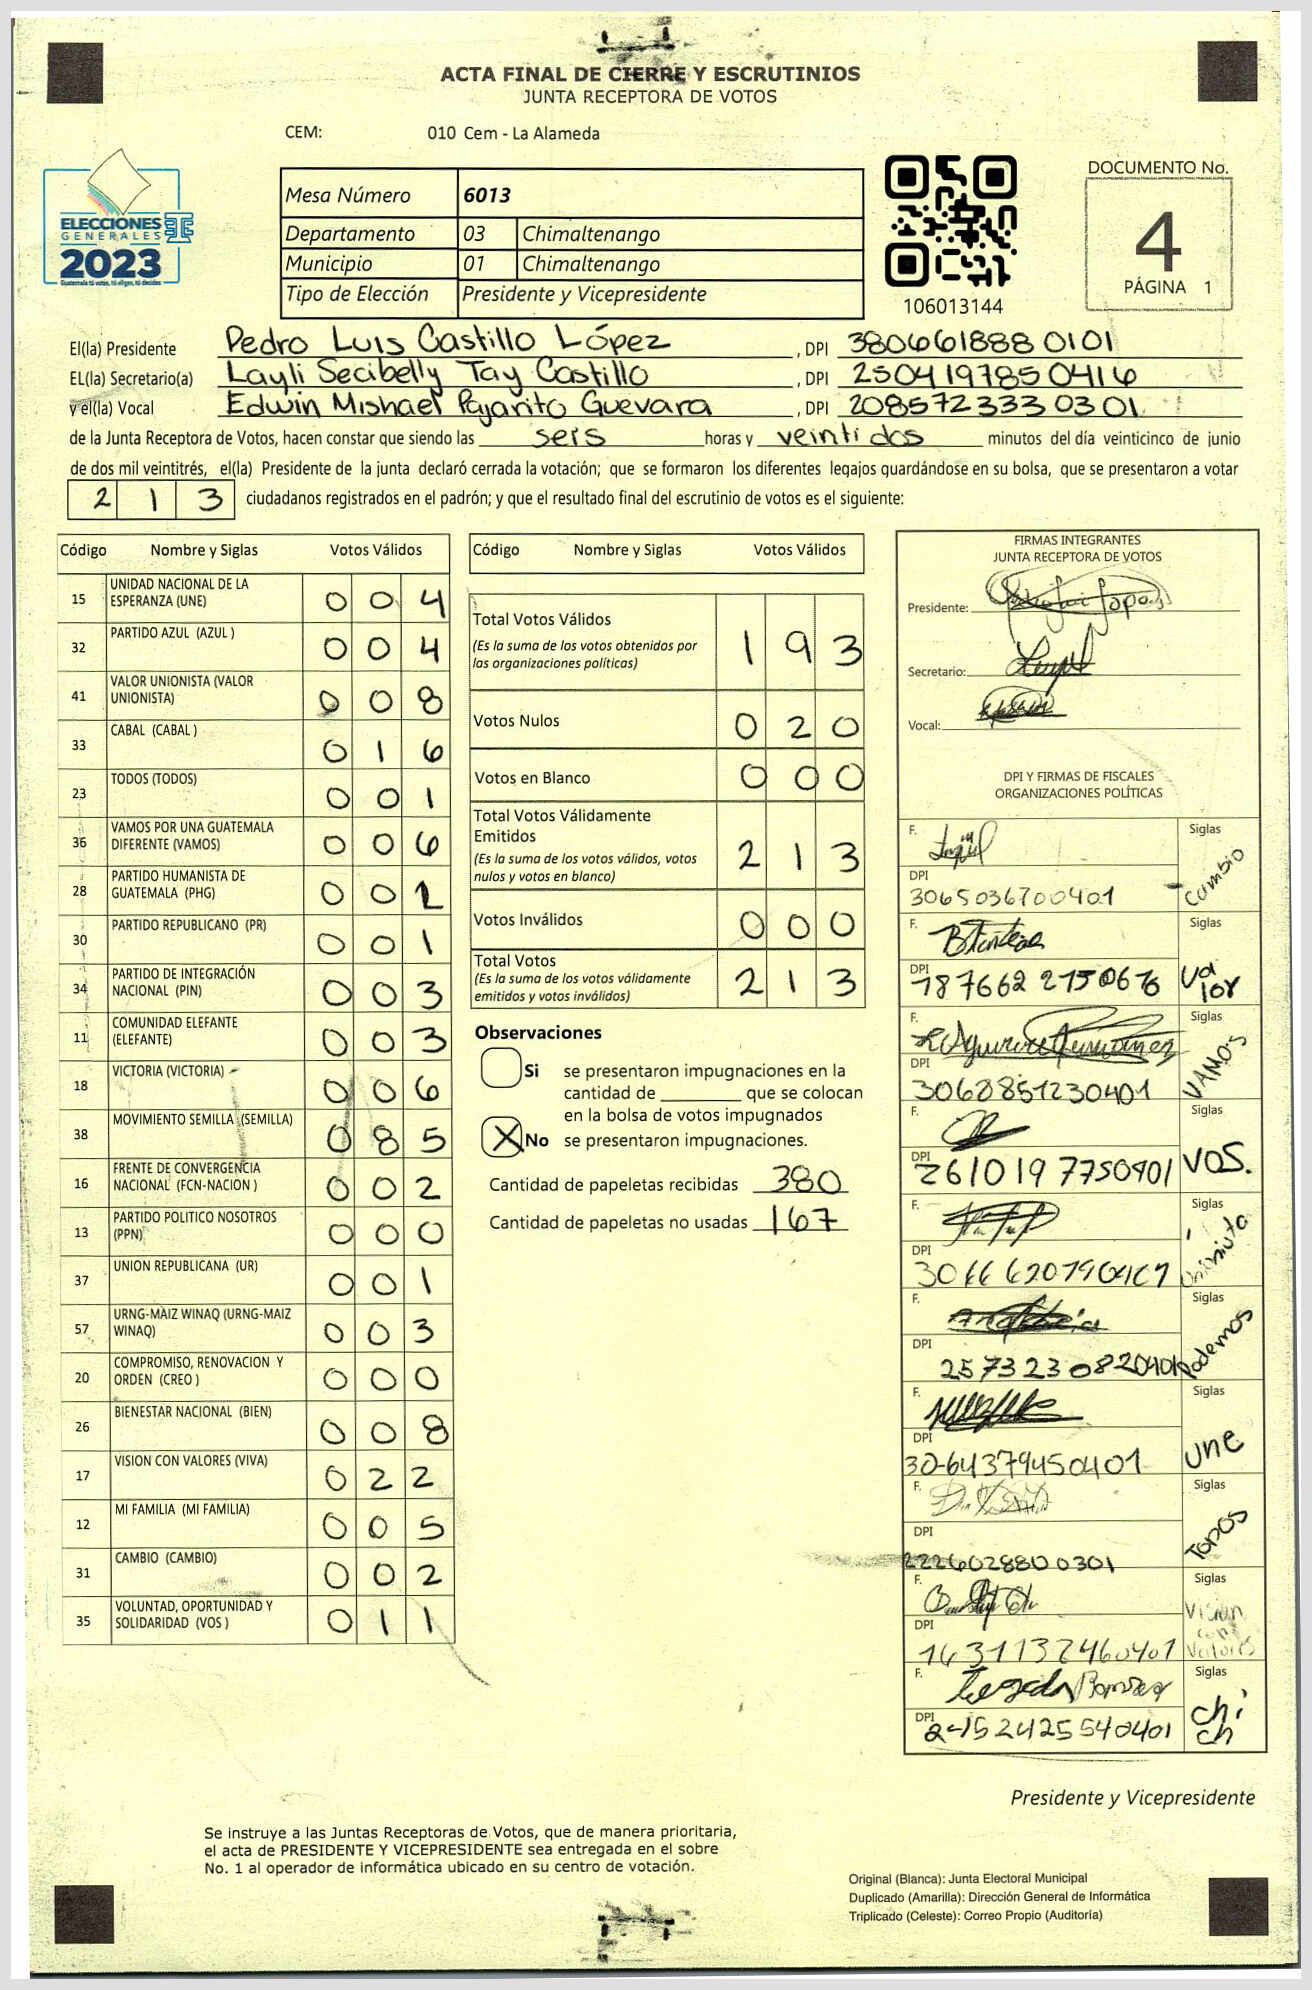 ACTA FINAL DE CIERRE Y ESCRUTINIOS
JUNTA RECEPTORA DE VOTOS
CEM: 010 Cem - La Alameda
ELECCIONES
GENERALES
2023
Guatemala tú votas, tú eliges, tú decides
Mesa Número 6013
Departamento 03 Chimaltenango
Municipio 01 Chimaltenango
Tipo de Elección Presidente y Vicepresidente
106013144
DOCUMENTO No.
4
PÁGINA 1
El(la) Presidente Pedro Luis Castillo López, DPI 380661888 0101
EL(la) Secretario(a) Layli Secibelly Tay Castillo, DPI 250419785 0416
y el(la) Vocal Edwin Mishael Pajarito Guevara, DPI 208572333 0301
de la Junta Receptora de Votos, hacen constar que siendo las seis horas y veintidos minutos del día veinticinco de junio
de dos mil veintitrés, el(la) Presidente de la junta declaró cerrada la votación; que se formaron los diferentes legajos guardándose en su bolsa, que se presentaron a votar
2 1 3 ciudadanos registrados en el padrón; y que el resultado final del escrutinio de votos es el siguiente:
Código Nombre y Siglas Votos Válidos
15 UNIDAD NACIONAL DE LA ESPERANZA (UNE) 0 0 4
32 PARTIDO AZUL (AZUL ) 0 0 4
41 VALOR UNIONISTA (VALOR UNIONISTA) 0 0 8
33 CABAL (CABAL ) 0 1 6
23 TODOS (TODOS) 0 0 1
36 VAMOS POR UNA GUATEMALA DIFERENTE (VAMOS) 0 0 6
28 PARTIDO HUMANISTA DE GUATEMALA (PHG) 0 0 2
30 PARTIDO REPUBLICANO (PR) 0 0 1
34 PARTIDO DE INTEGRACIÓN NACIONAL (PIN) 0 0 3
11 COMUNIDAD ELEFANTE (ELEFANTE) 0 0 3
18 VICTORIA (VICTORIA) 0 0 6
38 MOVIMIENTO SEMILLA (SEMILLA) 0 8 5
16 FRENTE DE CONVERGENCIA NACIONAL (FCN-NACION ) 0 0 2
13 PARTIDO POLITICO NOSOTROS (PPN) 0 0 0
37 UNION REPUBLICANA (UR) 0 0 1
57 URNG-MAIZ WINAQ (URNG-MAIZ WINAQ) 0 0 3
20 COMPROMISO, RENOVACION Y ORDEN (CREO ) 0 0 0
26 BIENESTAR NACIONAL (BIEN) 0 0 8
17 VISION CON VALORES (VIVA) 0 2 2
12 MI FAMILIA (MI FAMILIA) 0 0 5
31 CAMBIO (CAMBIO) 0 0 2
35 VOLUNTAD, OPORTUNIDAD Y SOLIDARIDAD (VOS ) 0 1 1
Código Nombre y Siglas Votos Válidos
Total Votos Válidos 1 9 3
(Es la suma de los votos obtenidos por
las organizaciones políticas)
Votos Nulos 0 2 0
Votos en Blanco 0 0 0
Total Votos Válidamente
Emitidos 2 1 3
(Es la suma de los votos válidos, votos
nulos y votos en blanco)
Votos Inválidos 0 0 0
Total Votos 2 1 3
(Es la suma de los votos válidamente
emitidos y votos inválidos)
Observaciones
Si se presentaron impugnaciones en la
cantidad de ________ que se colocan
en la bolsa de votos impugnados
X No se presentaron impugnaciones.
Cantidad de papeletas recibidas 380
Cantidad de papeletas no usadas 167
FIRMAS INTEGRANTES
JUNTA RECEPTORA DE VOTOS
Presidente:
Secretario:
Vocal:
DPI Y FIRMAS DE FISCALES
ORGANIZACIONES POLÍTICAS
F. Siglas
DPI 3065036700401 Cambio
F. Siglas
DPI Valor
F. Siglas
DPI 3068851230401 VAMOS
F. Siglas
DPI 2610197750401 VOS.
F. Siglas
DPI
F. Siglas
DPI 2573230820401 Podemos
F. Siglas
DPI 3064379450401 une
F. Siglas
DPI 2226028800301 TODOS
F. Siglas
DPI 1431132460401 Vision con Valores
F. Siglas
DPI
Presidente y Vicepresidente
Se instruye a las Juntas Receptoras de Votos, que de manera prioritaria,
el acta de PRESIDENTE Y VICEPRESIDENTE sea entregada en el sobre
No. 1 al operador de informática ubicado en su centro de votación.
Original (Blanca): Junta Electoral Municipal
Duplicado (Amarilla): Dirección General de Informática
Triplicado (Celeste): Correo Propio (Auditoría)